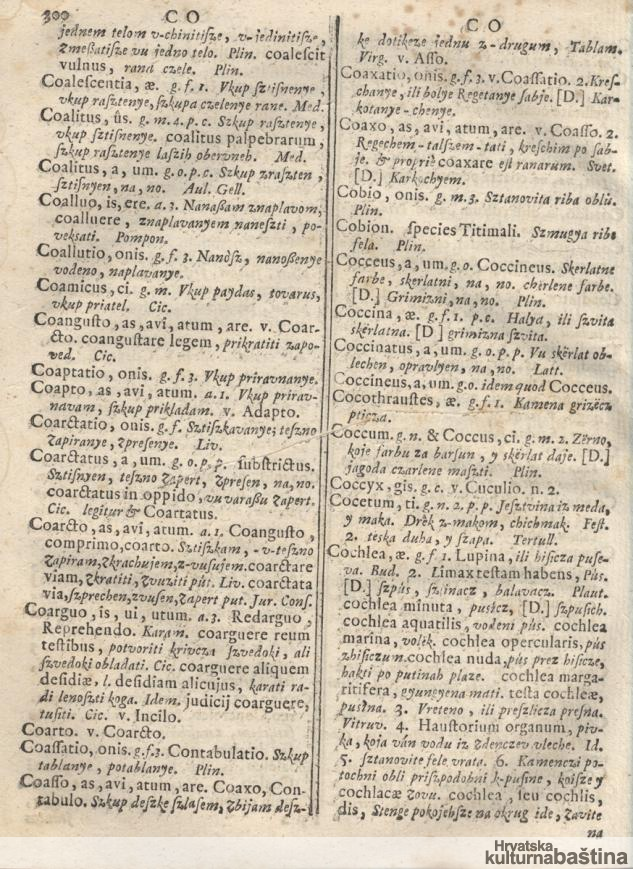 300 CO
jednem telom v-chinitisze, v-jedinitisze,
zmeßatisze vu jedno telo. Plin. coalescit
vulnus, rana czele. Plin.
Coalescentia, æ. g. f. 1. Vkup sztisnenye,
vkup rasztenye, szkupa czelenye rane. Med.
Coalitus, ûs. g. m. 4. p. c. Szkup rasztenye,
vkup sztisnenye. coalitus palpebrarum,
szkup rasztenye laszih obervneh. Med.
Coalitus, a, um. g. o. p. c. Szkup zraszten,
sztisnyen, na, no. Aul. Gell.
Coalluo, is, ere. a. 3. Nanaßam znaplavom;
coalluere, znaplavanyem naneszti, po-
veksati. Pompon.
Coallutio, onis. g. f. 3. Nanòsz, nanoßenye
vodeno, naplavanye.
Coamicus, ci. g. m. Vkup paydas, tovarus,
vkup priatel. Cic.
Coangusto, as, avi, atum, are. v. Coar-
cto. coangustare legem, prikratiti zapo-
ved. Cic.
Coaptatio, onis. g. f. 3. Vkup priravnanye.
Coapto, as, avi, atum. a. 1. Vkup prirav-
navam, szkup prikladam. v. Adapto.
Coarctatio, onis. g. f. Sztiszkavanye; teszno
zapiranye, zpresenye. Liv.
Coarctatus, a, um. g. o. p. p. substrictus.
Sztisnyen, teszno zapert, zpresen, na, no.
coarctatus in oppido, vu varaßu zapert.
Cic. legitur & Coartatus.
Coarcto, as, avi, atum. a. 1. Coangusto,
comprimo, coarto. Sztiszkam, -v-teszno
zapiram, zkrachujem, z-vusujem. coarctare
viam, zkratiti, zvuziti pút. Liv. coarctata
via, szprechen, zvusen, zapert put. Jur. Cons.
Coarguo, is, ui, utum. a. 3. Redarguo,
Reprehendo. Karam. coarguere reum
testibus, potvoriti krivcza szvedoki, ali
szvedoki obladati. Cic. coarguere aliquem
desidiæ, l. desidiam alicujus, karati ra-
di lenoszti koga. Idem. judicij coarguere,
tusiti. Cic. v. Incilo.
Coarto. v. Coarcto.
Coassatio, onis. g. f. 3. Contabulatio. Szkup
tablanye, potablanye. Plin.
Coasso, as, avi, atum, are. Coaxo, Con-
tabulo. Szkup deszke szlasem, zbijam desz-
CO
ke dotikeze jednu z-drugum, Tablam.
Virg. v. Asso.
Coaxatio, onis. g. f. 3. v. Coassatio. 2. Kres-
chanye, ili bolye Regetanye sabje. [D.] Kar-
kotanye-chenye.
Coaxo, as, avi, atum, are. v. Coasso. 2.
Regechem-talszem-tati, kreschim po sab-
je. & propriè coaxare est ranarum. Svet.
[D.] Karkochyem.
Cobio, onis. g. m. 3. Sztanovita riba oblú.
Plin.
Cobion. species Titimali. Szmugya ribe
fela. Plin.
Cocceus, a, um. g. o. Coccineus. Skerlatne
farbe, skerlatni, na, no. cherlene farbe.
[D.] Grimizni, na, no. Plin.
Coccina, æ. g. f. 1. p. c. Halya, ili szvita
skërlatna. [D] grimizna szvita.
Coccinatus, a, um. g. o. p. p. Vu skërlat ob-
lechen, opravlyen, na, no. Latt.
Coccineus, a, um. g. o. idem quod Cocceus.
Cocothraustes, æ. g. f. 1. Kamena grizëcz
pticza.
Coccum. g. n. & Coccus, ci. g. m. 2. Zërno,
koje farbu za barsun, y skërlat daje. [D.]
jagoda czarlene maszti. Plin.
Coccyx, gis. g. c. v. Cuculio. n. 2.
Cocetum, ti. g. n. 2. p. p. Jesztvina iz meda,
y maka. Drèk z-makom, chichmak. Fest.
2. teska duha, y szapa. Tertull.
Cochlea, æ. g. f. 1. Lupina, ili hisicza puse-
va. Bud. 2. Limax testam habens, Pús.
[D.] szpús, szinacz, balavacz. Plaut.
cochlea minuta, pusicz, [D.] szpusich.
cochlea aquatilis, vodeni pús. cochlea
marina, volèk. cochlea opercularis, pús
zhisiczum. cochlea nuda, pús prez hisicze,
kakti po putinah plaze. cochlea marga-
ritifera, gyungyena mati. testa cochleæ,
pusina. 3. Vreteno, ili preszlicza presna.
Vitruv. 4. Haustorium organum, piv-
ka, koja ván vodu iz zdenczev vleche. Id.
5. Sztanovite fele vrata. 6. Kamenczi po-
tochni obli priszpodobni k-pusine, koisze y
cochlacæ zovu. cochlea, seu cochlis,
dis, Stenge pokojebsze na okrug ide, zavite
na
Hrvatska
kulturnabaština